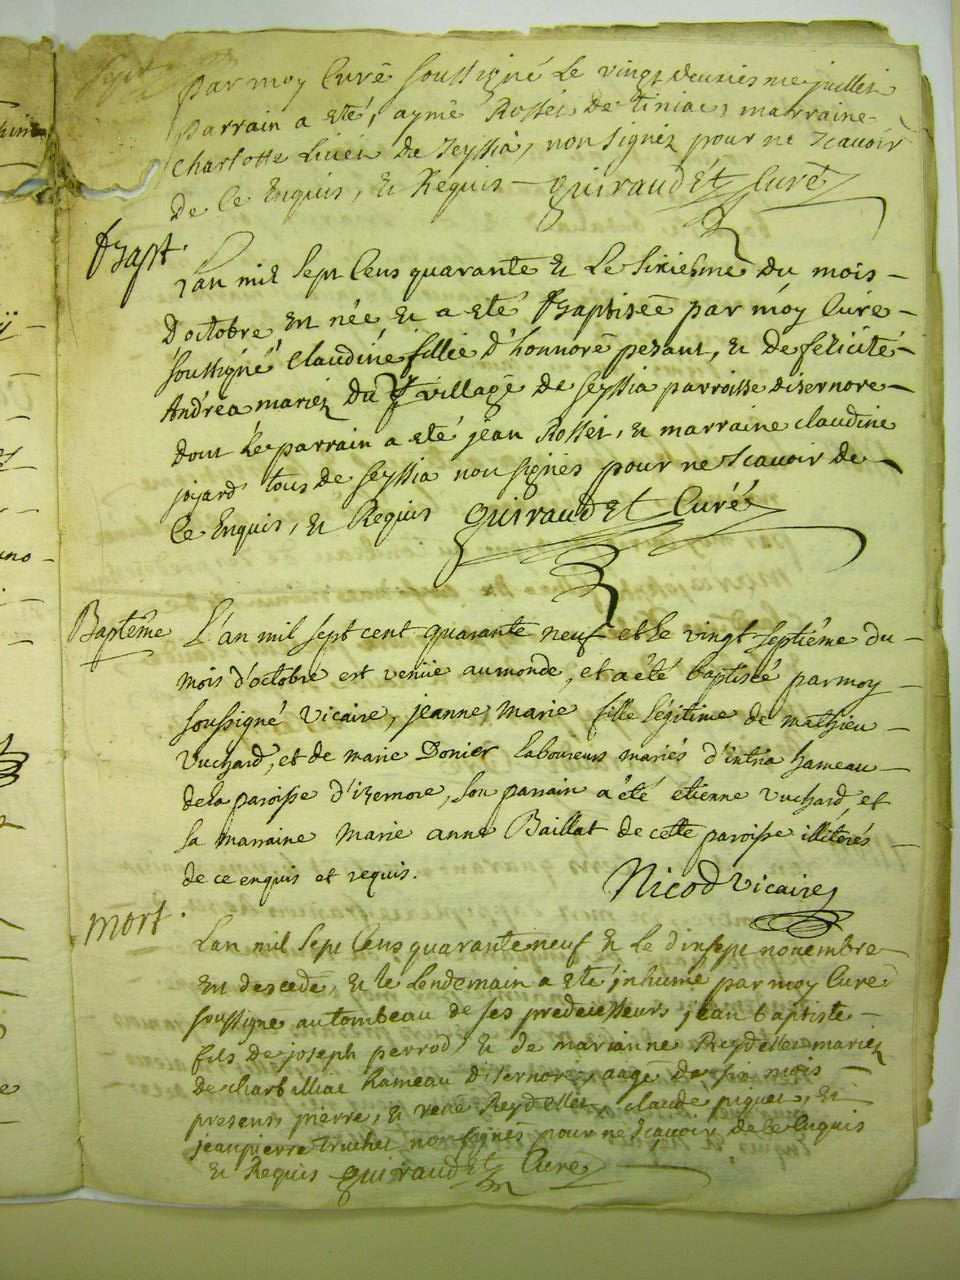 par moy Curé soussigné le vingt deuxiesme juillet
parrain a eté, aymé Rosset de tiniac, marraine
charlotte Livet de Seyssia, non signez pour ne scavoir
de Ce Enquis, et Requis Guiraudet Curé
Bapt.
Lan mil Sept Cens quarante et le sixiesme du mois
d'octobre est née et a eté Baptisée par moy Curé
soussigné Claudine fillie d'honnoré pesant, et de felicité
Andréa mariez du village de seyssia parroisse disernore
dont le parrain a eté jean Rosset, et marraine claudine
joyard tous de seyssia non signés pour ne scavoir de
Ce Enquis, et Requis Guiraudet Curé
Baptême
L'an mil sept cent quarante neuf et le vingt septiême du
mois d'octobre est venüe au monde, et a été baptisée par moy
soussigné vicaire, jeanne marie fille légitime de mathieu
Vuchard, et de marie Donier laboureurs mariés d'intria hameau
de la paroisse d'izernore, son parrain a été etienne vuchard, et
sa marraine marie anne Baillat de cette paroisse illiterés
de ce enquis et requis.
Nicod vicaire
mort.
Lan mil Sept Cens quarante neuf et le dixsept novembre
est descede, et le lendemain a eté inhumé par moy Curé
soussigné au tombeau de ses predecesseurs jean baptiste
fils de joseph perrod et de marianne Reydellet mariez
de charbilliac hameau disernore, aagé de six mois
presents pierre, et rené Reydellet, claude piquet, et
jeanpierre truchet non signés pour ne scavoir de Ce Enquis
et Requis Guiraudet Curé